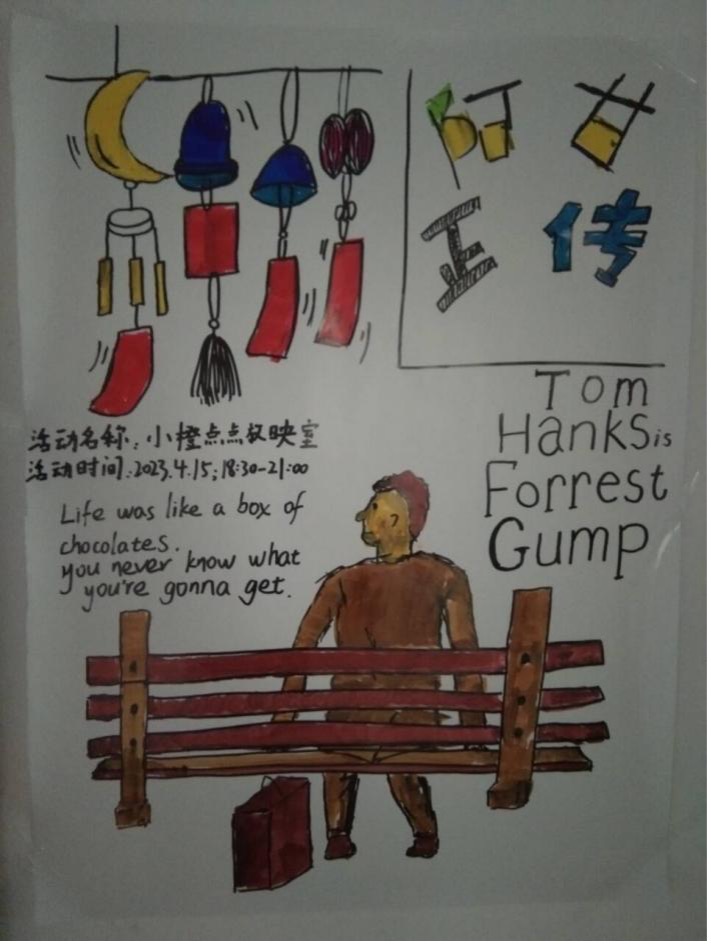 阿甘
正传
Tom
Hanks is
Forrest
Gump
活动名称:小橙点点放映室
活动时间:2023.4.15;18:30-21:00
Life was like a box of
chocolates.
you never know what
you're gonna get.